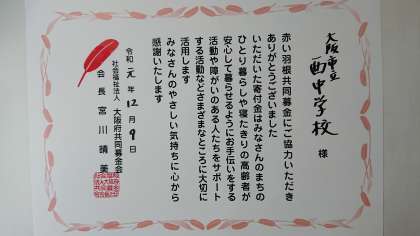 大阪市立
西中学校 様
赤い羽根共同募金にご協力いただき
ありがとうございました
いただいた寄付金はみなさんのまちの
ひとり暮らしや寝たきりの高齢者が
安心して暮らせるようにお手伝いをする
活動や障がいのある人たちをサポート
する活動などさまざまなところに大切に
活用します
みなさんのやさしい気持ちに心から
感謝いたします
令和元年12月9日
社会福祉法人 大阪府共同募金会
会長 宮川晴美